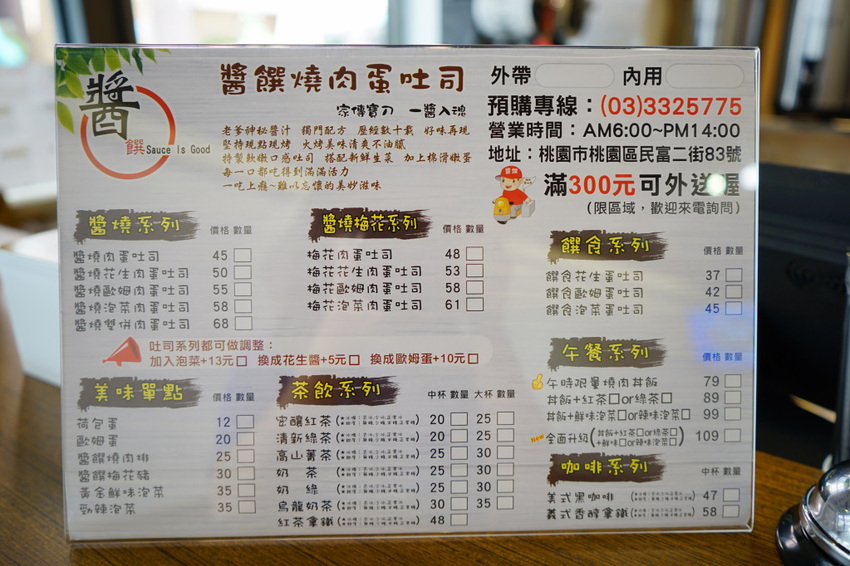 醬
饌 Sauce Is Good
醬饌燒肉蛋吐司
家傳寶刀 一醬入魂
老爹神秘醬汁 獨門配方 歷經數十載 好味再現
堅持現點現烤 火烤美味清爽不油膩
特製軟嫩口感吐司 搭配新鮮生菜 加上棉滑嫩蛋
每一口都吃得到滿滿活力
一吃上癮~難以忘懷的美妙滋味
外帶 內用
預購專線：(03)3325775
營業時間：AM6:00~PM14:00
地址：桃園市桃園區民富二街83號
滿300元可外送喔
(限區域，歡迎來電詢問)
醬燒系列 價格 數量
醬燒肉蛋吐司 45
醬燒花生肉蛋吐司 50
醬燒歐姆肉蛋吐司 55
醬燒泡菜肉蛋吐司 58
醬燒雙倂肉蛋吐司 68
醬燒梅花系列 價格 數量
梅花肉蛋吐司 48
梅花花生肉蛋吐司 53
梅花歐姆肉蛋吐司 58
梅花泡菜肉蛋吐司 61
饌食系列 價格 數量
饌食花生蛋吐司 37
饌食歐姆蛋吐司 42
饌食泡菜蛋吐司 45
吐司系列都可做調整：
加入泡菜+13元□ 換成花生醬+5元□ 換成歐姆蛋+10元□
美味單點
荷包蛋 12
歐姆蛋 20
醬饌燒肉排 25
醬饌梅花豬 30
黃金鮮味泡菜 35
勁辣泡菜 35
茶飲系列 中杯 數量 大杯 數量
密釀紅茶 20 25
清新綠茶 20 25
高山菁茶 25 30
奶 茶 25 30
奶 綠 25 30
烏龍奶茶 30 35
紅茶拿鐵 48
午餐系列 價格 數量
午時限量燒肉丼飯 79
丼飯+紅茶□or綠茶□ 89
丼飯+鮮味泡菜□or辣味泡菜□ 99
New 全面升級(丼飯+紅茶□or綠茶□
+鮮味□or辣味泡菜□) 109
咖啡系列 中杯 數量
美式黑咖啡 47
義式香醇拿鐵 58